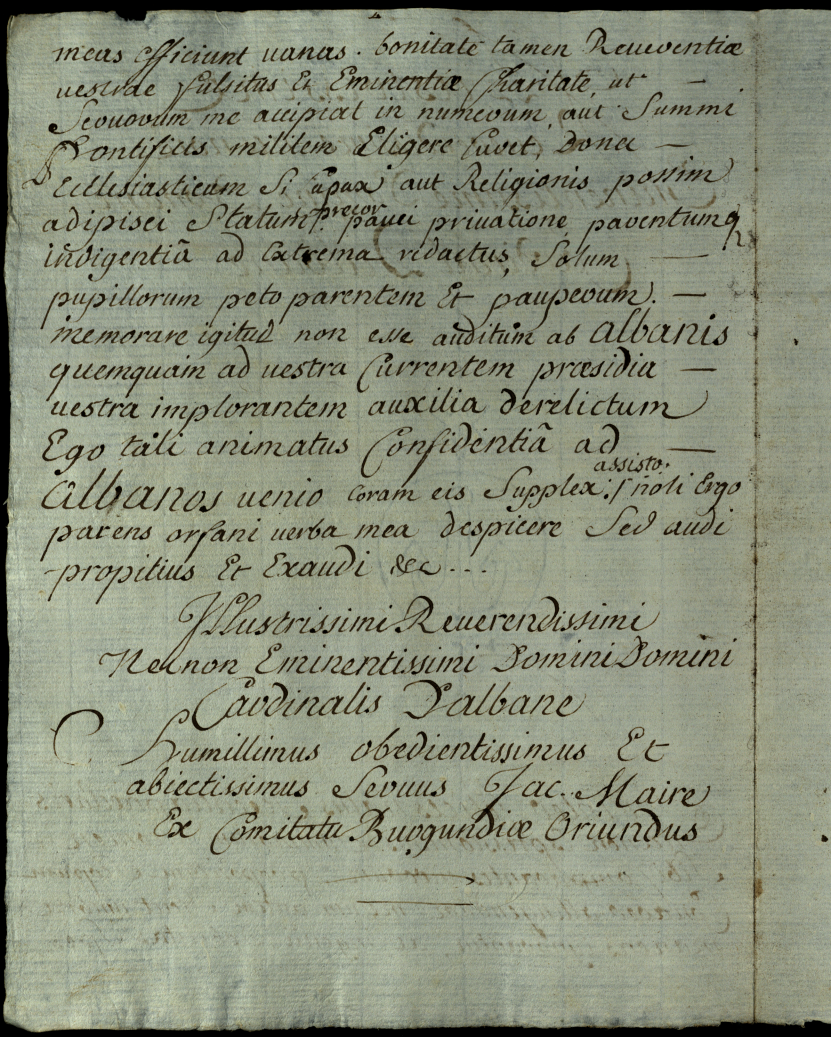 meas efficiunt uanas. bonitate tamen Reuerentiæ
uestrae fulsitus Et Eminentiæ Charitate, ut —
Seruorum me accipiat in numerum, aut Summi
Pontificis militem Eligere Curet, Donec —
Ecclesiasticum Si capax aut Religionis possim
adipisci Statum. precor
pauci priuatione parentumq
indigentiã ad Extrema redactus, Solum —
pupillorum peto parentem Et pauperum. —
memorare igitur non esse auditum ab albanis
quemquam ad uestra Currentem præsidia —
uestra implorantem auxilia derelictum
Ego tali animatus Confidentiã ad —
assisto.
albanos uenio coram eis Supplex: noli Ergo
parens orfani uerba mea despicere Sed audi
propitius Et Exaudi &c...
Illustrissimi Reuerendissimi
Necnon Eminentissimi Domini Domini
Cardinalis D'albane
humillimus obedientissimus Et
abiectissimus Seruus Jac. Maire
Ex Comitatu Burgundiæ Oriundus